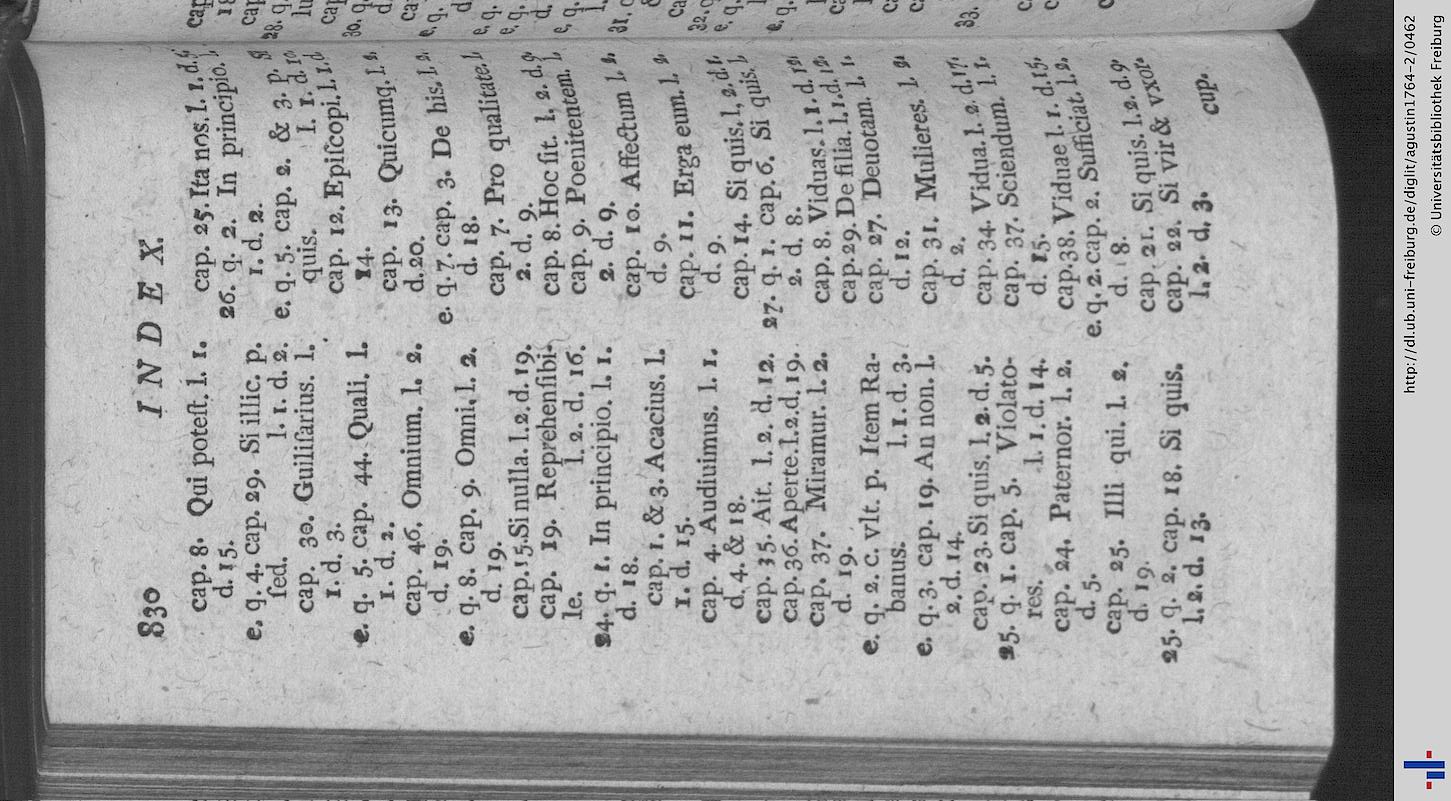 830
INDEX.
cap. 8. Qui poteſt. l. 1.
d. 15.
e. q. 4. cap. 29. Si illic. p.
l. 1. d. 2.
ſed.
cap. 30. Guiliſarius. l.
1. d. 3.
e. q. 5. cap. 44. Quali. l.
1. d. 2.
cap. 46. Omnium. l. 2.
d. 19.
e. q. 8. cap. 9. Omni. l. 2.
d. 19.
cap. 15. Si nulla. l. 2. d. 19.
cap. 19. Reprehenſibi-
le. l. 2. d. 16.
24. q. 1. In principio. l. 1.
d. 18.
cap. 1. & 3. Acacius. l.
1. d. 15.
cap. 4. Audiuimus. l. 1.
d. 4. & 18.
cap. 35. Ait. l. 2. d. 12.
cap. 36. Aperte. l. 2. d. 19.
cap. 37. Miramur. l. 2.
d. 19.
e. q. 2. c. vlt. p. Item Ra-
banus. l. 1. d. 3.
e. q. 3. cap. 19. An non. l.
2. d. 14.
cap. 23. Si quis. l. 2. d. 5.
25. q. 1. cap. 5. Violato-
res. l. 1. d. 14.
cap. 24. Paternor. l. 2.
d. 5.
cap. 25. Illi qui. l. 2.
d. 19.
25. q. 2. cap. 18. Si quis.
l. 2. d. 13.
cap. 25. Ita nos. l. 1. d.
26. q. 2. In principio.
1. d. 2.
e. q. 5. cap. 2. & 3. p.
quis. l. 1. d. 10
cap. 12. Epiſcopi. l. 1. d
14.
cap. 13. Quicumq. l. 2.
d. 20.
e. q. 7. cap. 3. De his. l. 2.
d. 18.
cap. 7. Pro qualitate. l.
2. d. 9.
cap. 8. Hoc ſit. l. 2. d. 9.
cap. 9. Poenitentem. l.
2. d. 9.
cap. 10. Affectum l. 2.
d. 9.
cap. 11. Erga eum. l. 2.
d. 9.
cap. 14. Si quis. l. 2. d. 1.
27. q. 1. cap. 6. Si quis. l.
2. d. 8.
cap. 8. Viduas. l. 1. d. 12.
cap. 29. De filia. l. 1. d. 12.
cap. 27. Deuotam. l. 1.
d. 12.
cap. 31. Mulieres. l. 2.
d. 2.
cap. 34. Vidua. l. 2. d. 17.
cap. 37. Sciendum. l. 1.
d. 15.
cap. 38. Viduae l. 1. d. 15.
e. q. 2. cap. 2. Sufficiat. l. 2.
d. 8.
cap. 21. Si quis. l. 2. d. 9.
cap. 22. Si vir & vxor.
l. 2. d. 3.
cup.
http://dl.ub.uni-freiburg.de/diglit/agustin1764-2/0462
© Universitätsbibliothek Freiburg